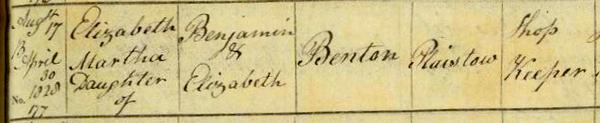 Augst 17
B. April
30
1828
No.
177
Elizabeth
Martha
Daughter
of
Benjamin
&
Elizabeth
Benton
Plaistow
Shop
Keeper